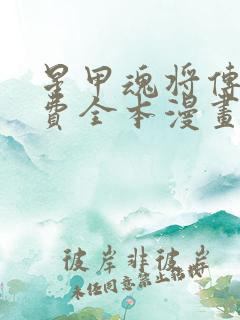 星甲魂将傳
費全本漫畫
彼岸非彼岸
未经同意禁止转载